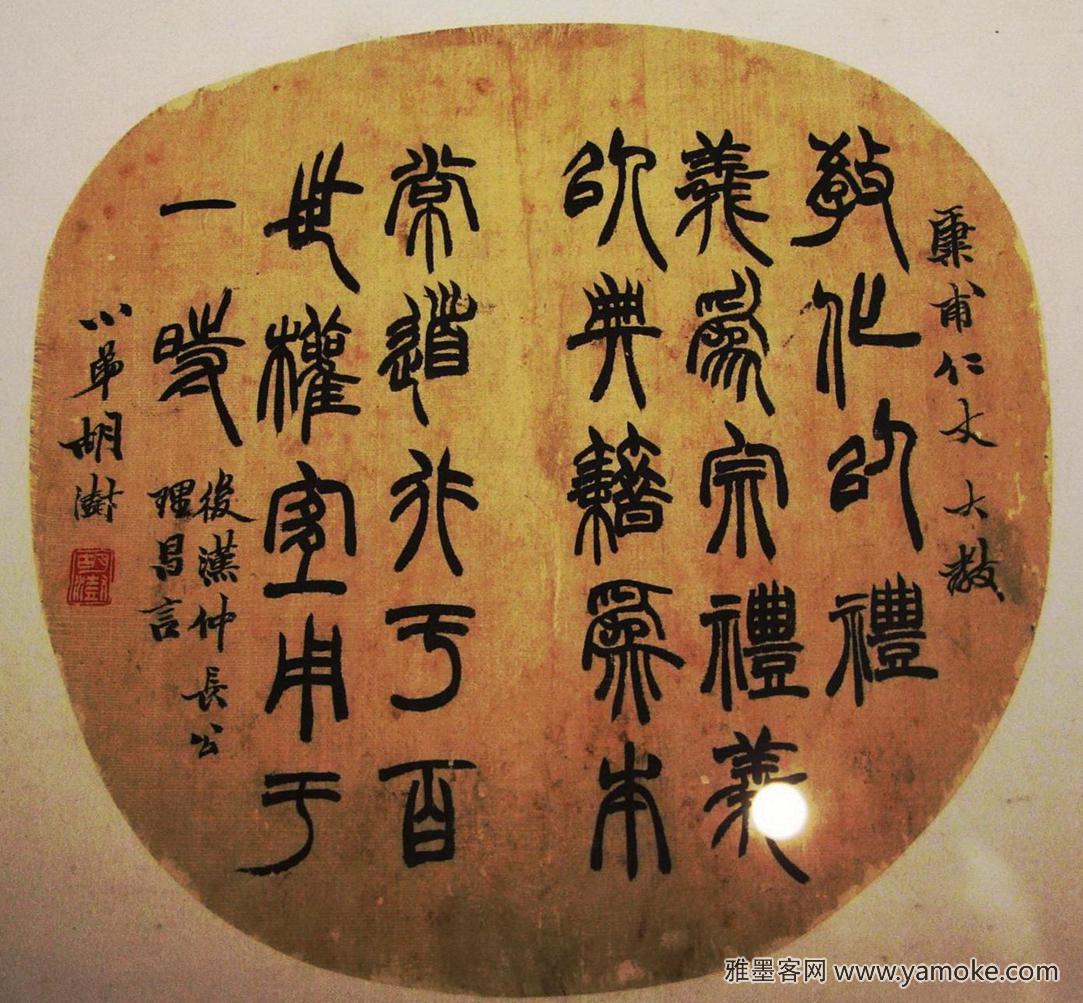 甫仁丈大教
教化以禮
義爲宗禮義
以典籍爲本
常道行于百
世權宜用于
一時
後漢仲長公
理昌言
小弟胡澍
胡澍
雅墨客网 www.yamoke.com